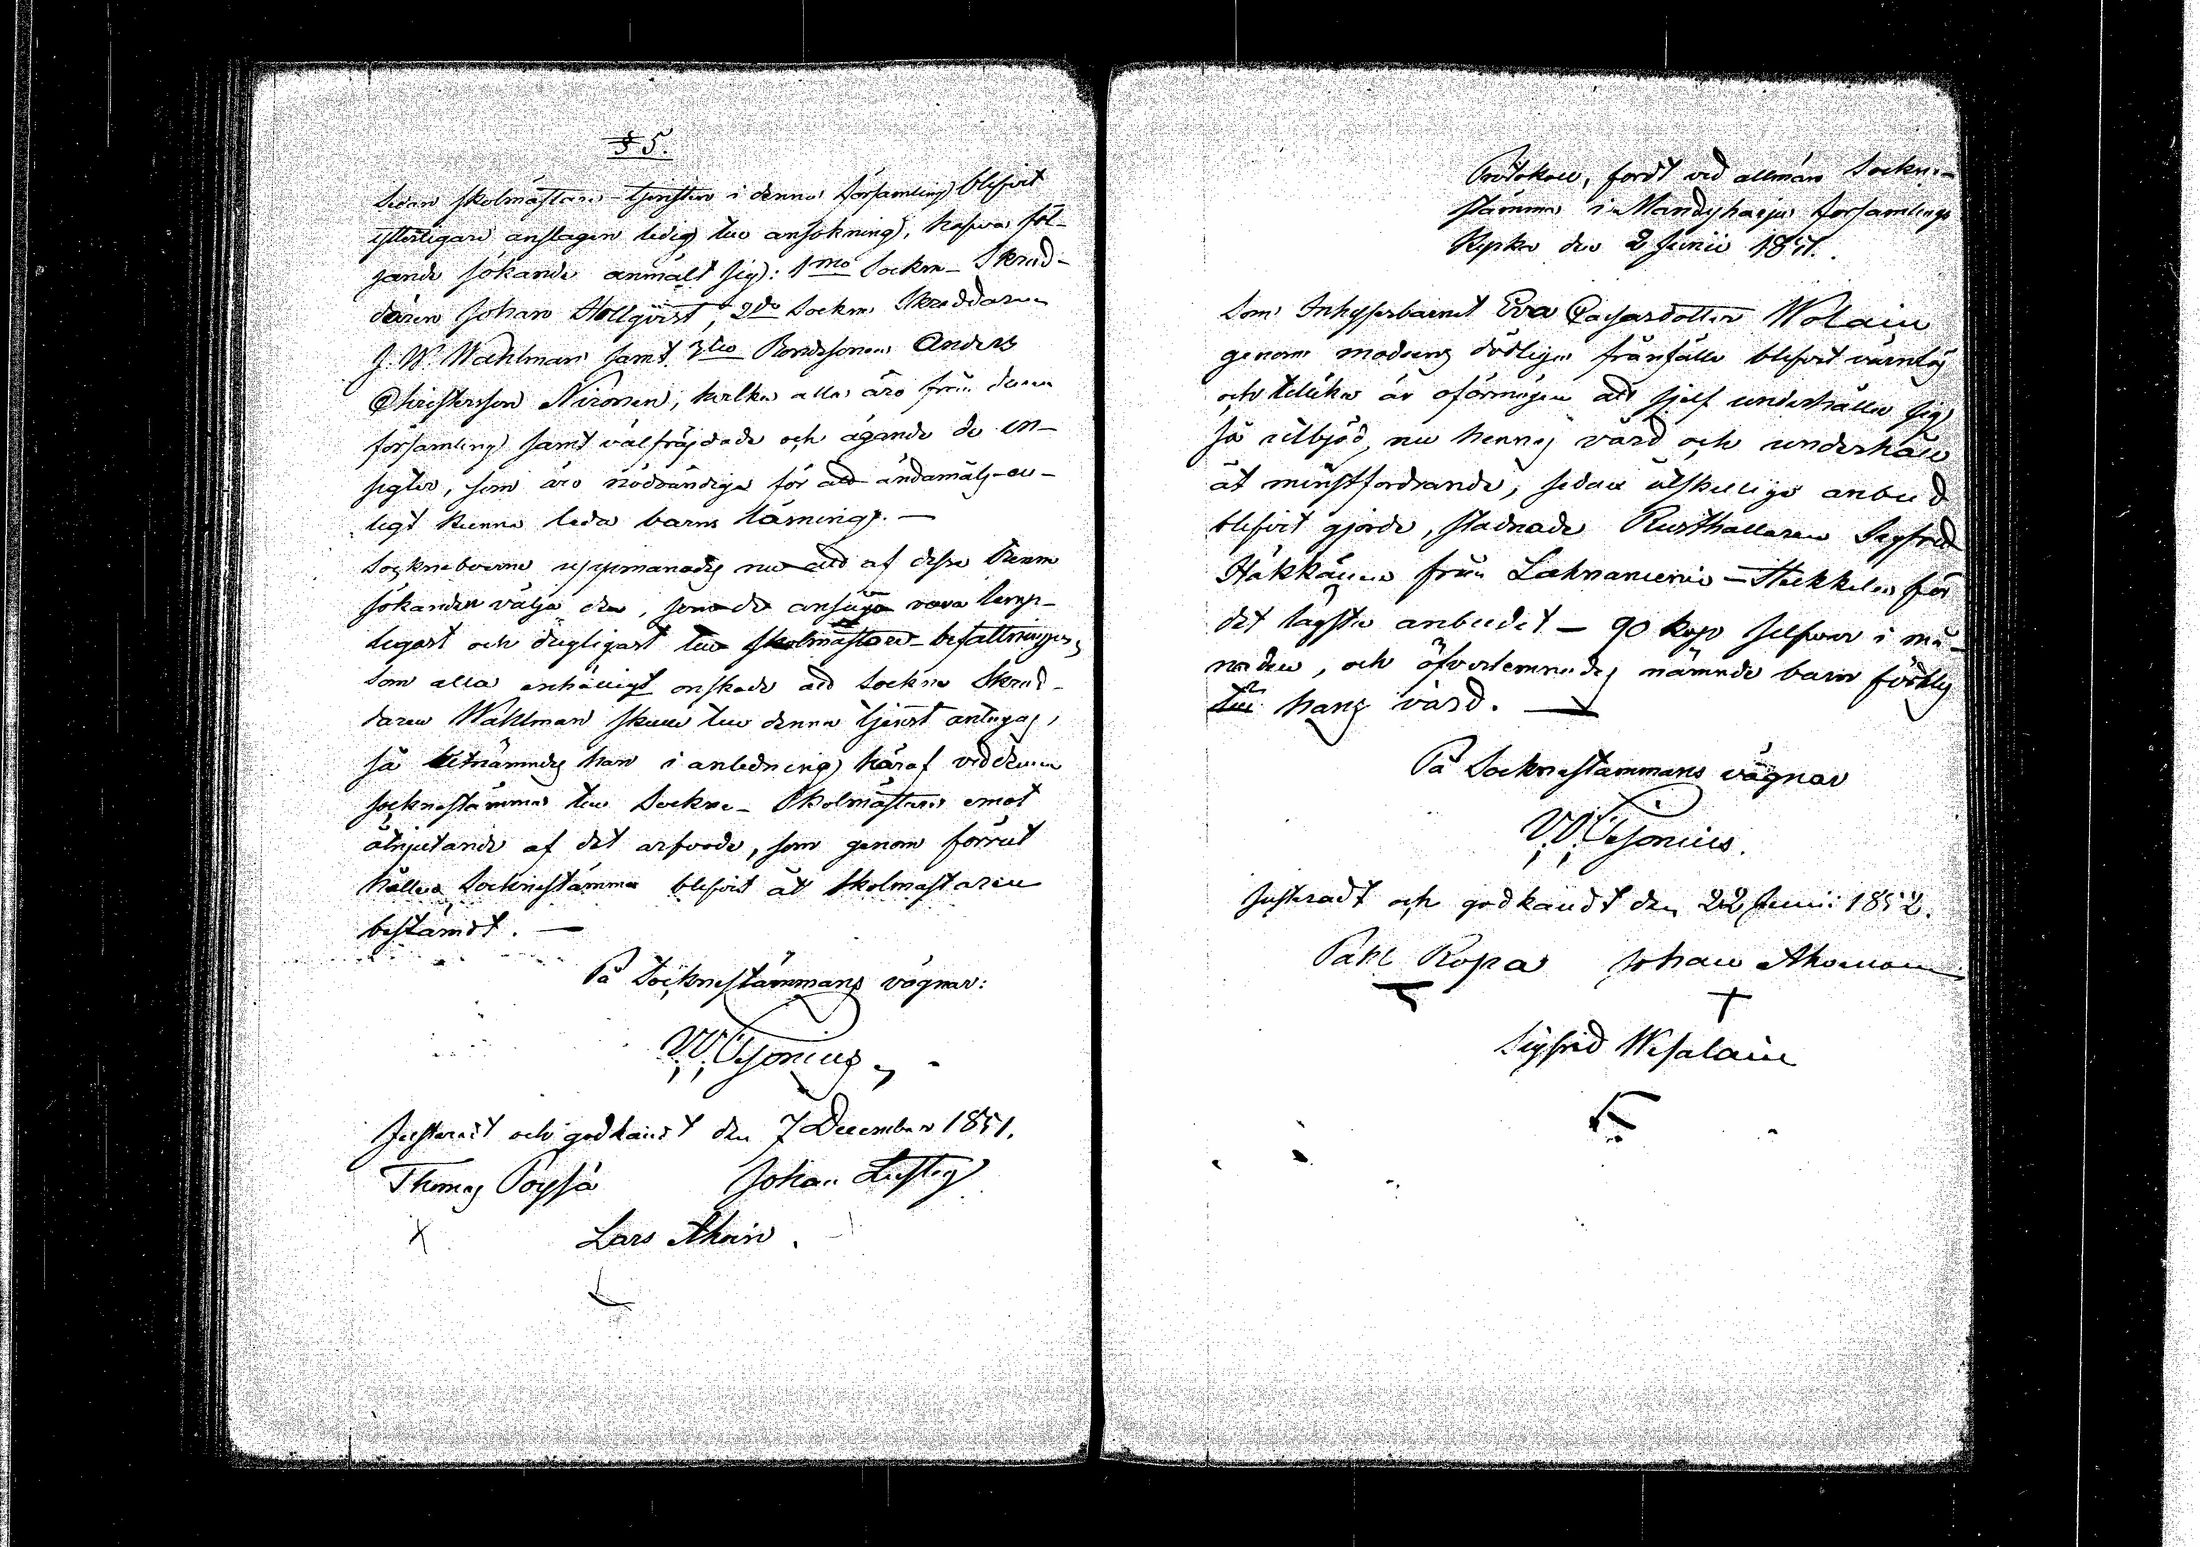 § 5.
Sedan skolmästare-tjensten i denna församling blifvit
ytterligare anslagen ledig till ansökning, hafva föl-
jande sökande anmält sig: 1mo Sockne-Skred-
daren Johan Hellqvist, 2do Sockne Skreddaren
J. W. Wahlman samt 3tio Bondesonen Anders
Christersson Nironen, hvilka alla äro från denna
församling samt välfräjdade och ägande de in-
sigter, som äro nödvändiga för att ändamåls-en-
ligt kunna leda barns läsning. —
Sockneboerne uppmanades nu att af desse trenne
sökanden välja den, som de anse vara lämp-
ligast och dugligast till skolmästare-befattningen,
som alla enhälligt önskade att Sockne Skred-
daren Wahlman skulle till denna tjenst antagas,
så utnämndes han i anledning häraf vid denna
socknestämma till Sockne-Skolmästare emot
åtnjutande af det arfvode, som genom förrut
hållen Socknestämma blifvit åt Skolmästaren
bestämdt. —
På Socknestämmans vägnar:
W. Cesonius
Justeradt och godkändt den 7 December 1851.
Thomas Pöysä Johan Lustig
X Lars Ahoin.
Protokoll, fördt vid allmän Sockne-
stämma i Mändyharju församlings
Kyrka den 2 Junii 1851.
Som Inhysesbarnet Eva Caisasdotter Wolain
genom modrens dödliga frånfälle blifvit värnlös
och tillika är oförmögen att sjelf underhålla sig,
så utbjöds nu hennes vård och underhåll
åt minstfordrande; sedan åtskillige anbud
blifvit gjorde, stadnade Rusthållaren Sigfrid
Häkkäinen från Lahnaniemi-Heikkilä för
det lägsta anbudet — 90 kop. silfver i må-
naden, och öfverlemnades nämnde barn
till hans vård. —
På Socknestämmans vägnar
W. Cesonius.
Justeradt och godkändt den 22 Junii 1852.
Påhl Ropa Johan Ahonen
Sigfrid Wesalain